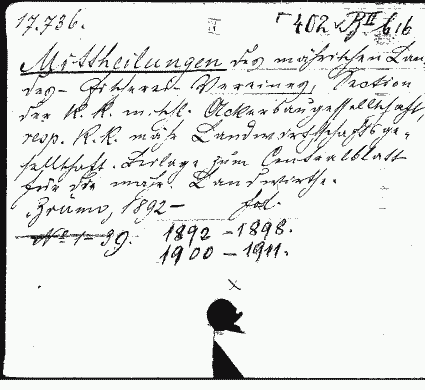 17.736. II 402 B II b, 16
Mittheilungen des mährischen Lan-
des-Fischerei-Vereines, Section
der k. k. m. schl. Ackerbaugesellschaft,
resp. k. k. mähr. Landwirtschaftsge-
sellschaft. Beilage zum Centralblatt
für die mähr. Landwirthe.
Brünn, 1892- fol.
No 1-39. 1892-1898.
1900-1911.